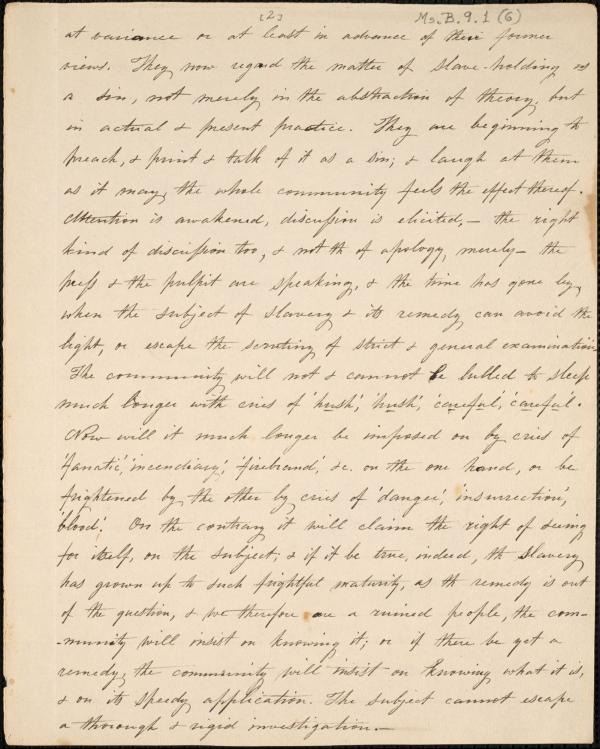 [2]
Ms. B. 9. 1 (6)
at variance or at least in advance of their former
views. They now regard the matter of slave-holding as
a sin, not merely in the abstraction of theory, but
in actual & present practice. They are beginning to
preach, & print & talk of it as a sin; & laugh at them
as it may, the whole community feels the effect thereof.
Attention is awakened, discussion is elicited,— the right
kind of discussion too, & not th of apology, merely— the
press & the pulpit are speaking, & the time has gone by,
when the subject of slavery & its remedy can avoid the
light, or escape the scrutiny of strict & general examination.
The community will not & cannot be lulled to sleep
much longer with cries of 'hush', 'hush', 'careful', 'careful'.
Now will it much longer be imposed on by cries of
'fanatic', 'incendiary', 'firebrand', &c. on the one hand, or be
frightened by the other by cries of 'danger', 'insurrection',
'blood'. On the contrary it will claim the right of seeing
for itself, on the subject, & if it be true, indeed, th slavery
has grown up to such frightful maturity, as th remedy is out
of the question, & we therefore are a ruined people, the com-
-munity will insist on knowing it; or if there be yet a
remedy, the community will insist on knowing what it is,
& on its speedy application. The subject cannot escape
a thorough & rigid investigation.—